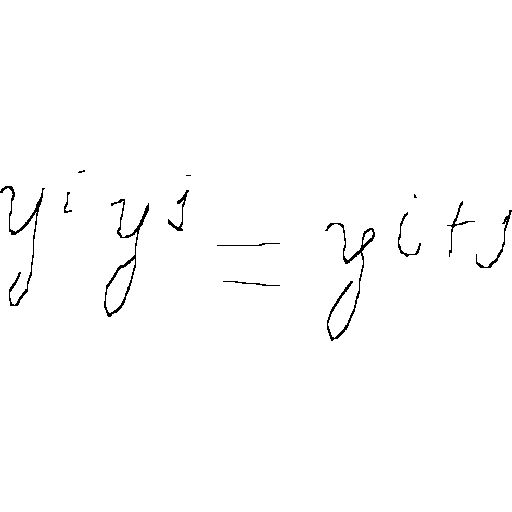 y^i y^j = y^{i+j}